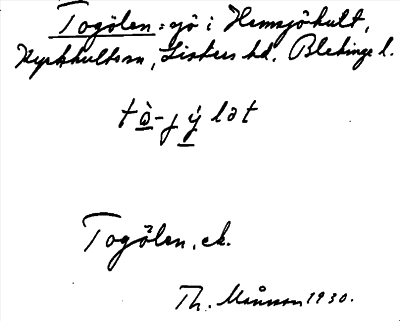 Togölen = gö i Hemsjökult,
Kyrkhultssn, Listers hd. Blekinge l.
tò-jýlət
Togölen, ek.
Th. Månsson 1930.